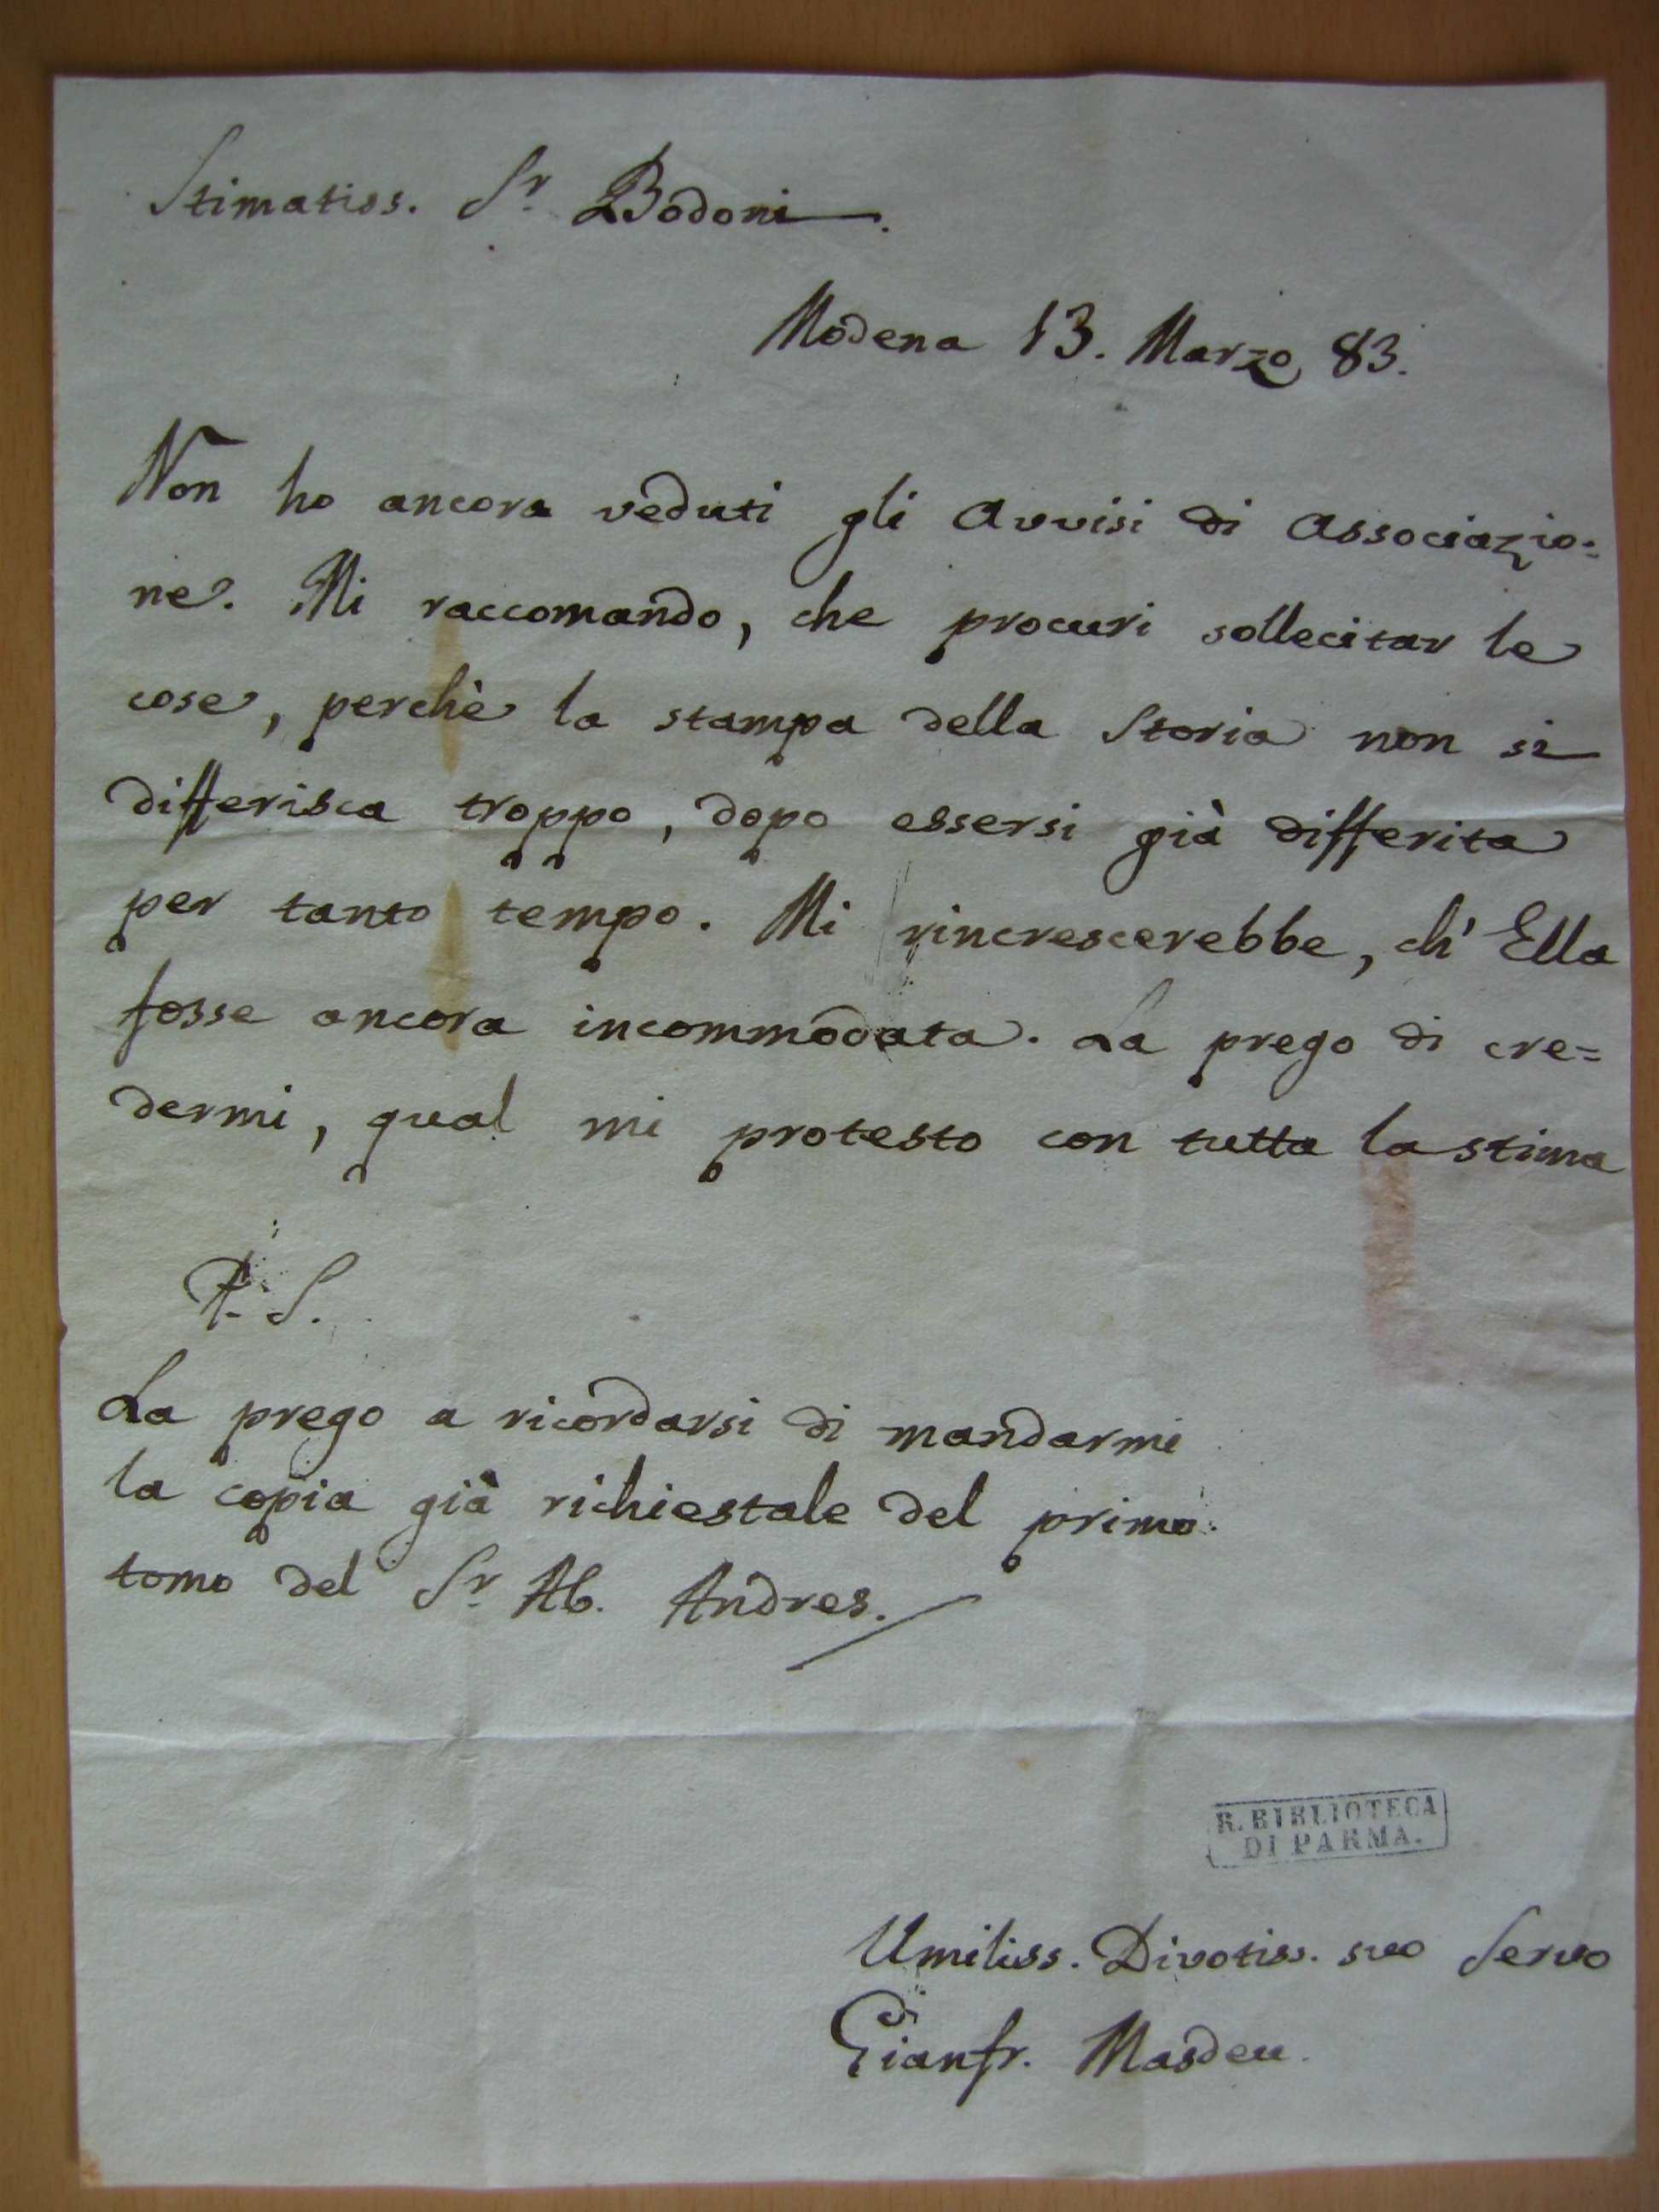 Stimatiss. Sr. Bodoni.
Modena 13. Marzo 83.
Non ho ancora veduti gli Avvisi di Associazio=
ne. Mi raccomando, che procuri sollecitar le
cose, perchè la stampa della Storia non si
differisca troppo, dopo essersi già differita
per tanto tempo. Mi rincrescerebbe, ch' Ella
fosse ancora incommodata. La prego di cre=
dermi, qual mi protesto con tutta la stima
P. S.
La prego a ricordarsi di mandarmi
la copia già richiestale del primo
tomo del Sr. Ab. Andres.
R. BIBLIOTECA
DI PARMA.
Umiliss. Divotiss. suo Servo
Gianfr. Masdeu.